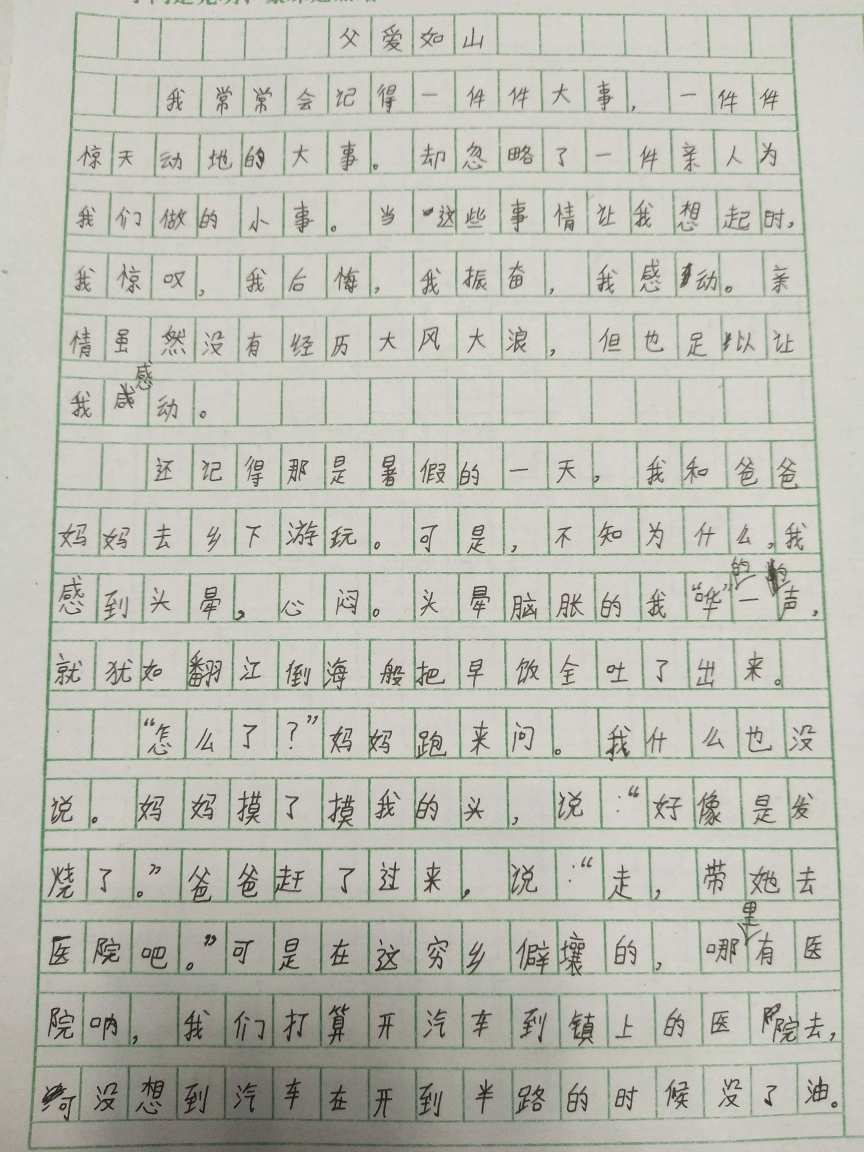 父爱如山
我常常会记得一件件大事，一件件
惊天动地的大事。却忽略了一件亲人为
我们做的小事。当这些事情让我想起时，
我惊叹，我后悔，我振奋，我感动。亲
情虽然没有经历大风大浪，但也足以让
我感动。
还记得那是暑假的一天，我和爸爸
妈妈去乡下游玩。可是，不知为什么，我
感到头晕，心闷。头晕脑胀的我“哗”的一声，
就犹如翻江倒海般把早饭全吐了出来。
“怎么了？”妈妈跑来问。我什么也没
说。妈妈摸了摸我的头，说：“好像是发
烧了。”爸爸赶了过来，说：“走，带她去
医院吧。”可是在这穷乡僻壤的，哪里有医
院呐，我们打算开汽车到镇上的医院去，
可没想到汽车在开到半路的时候没了油。